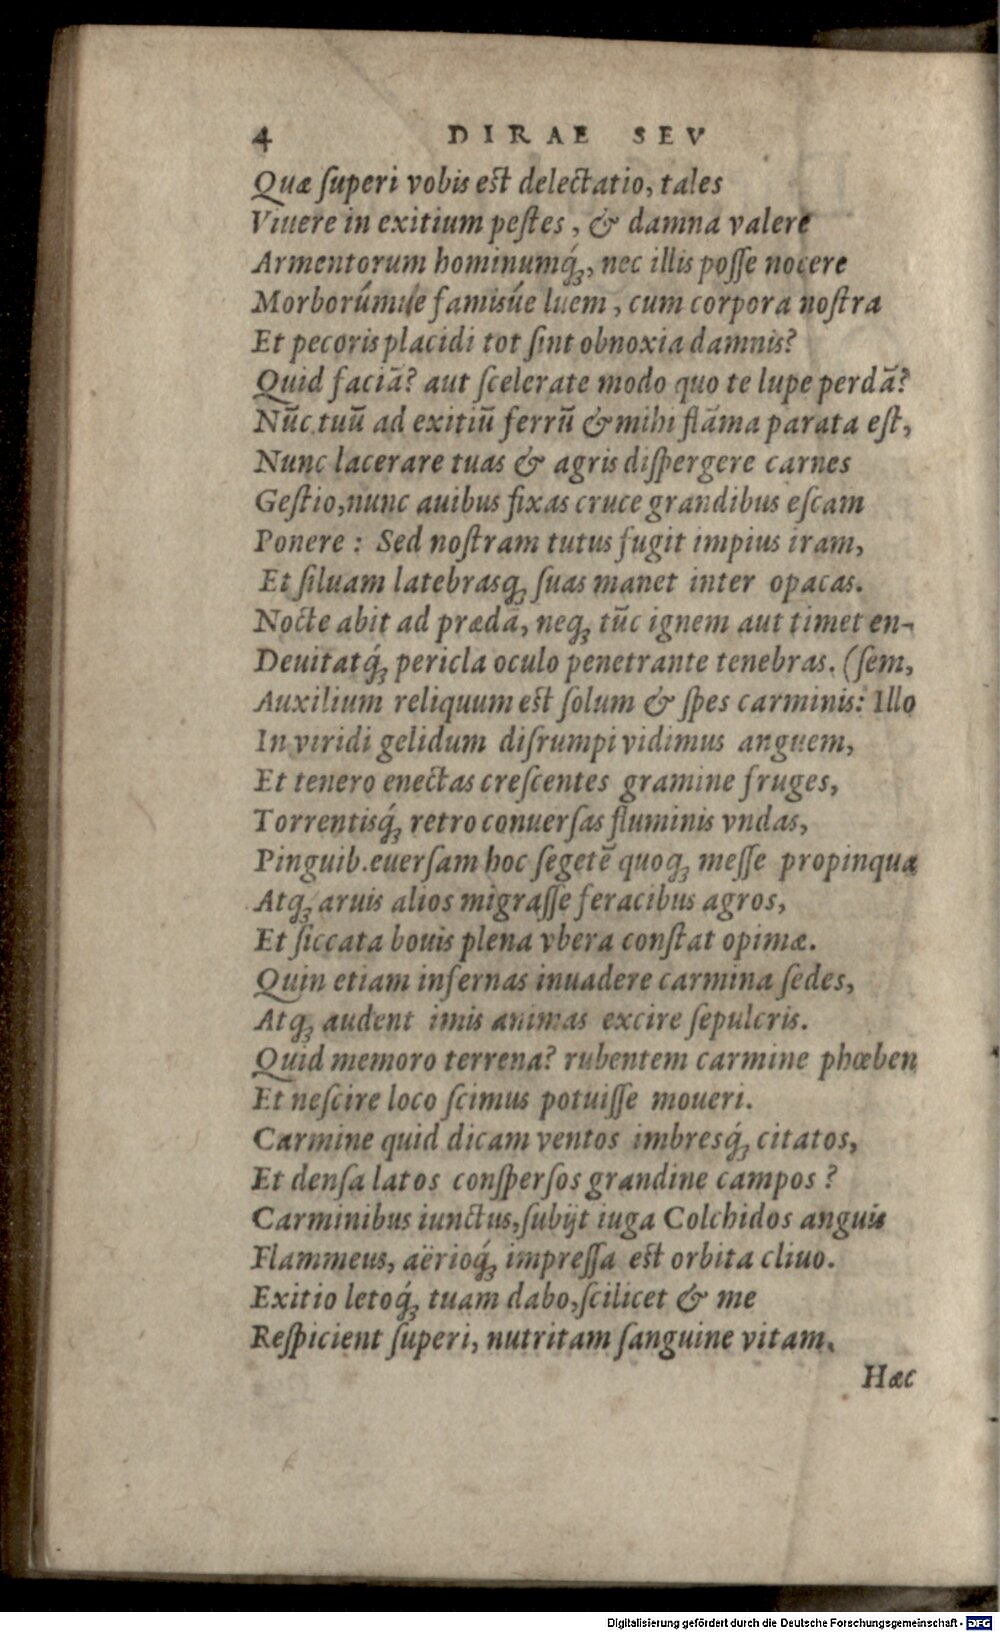 4 DIRAE SEV
Quæ ſuperi vobis est delectatio, tales
Viuere in exitium peſtes, & damna valere
Armentorum hominumq́ꝫ, nec illis poſſe nocere
Morborúmue famisúe luem, cum corpora noſtra
Et pecoris placidi tot ſint obnoxia damnis?
Quid faciā? aut ſcelerate modo quo te lupe perdā?
Nūc tuū ad exitiū ferrū & mihi flāma parata eſt,
Nunc lacerare tuas & agris diſpergere carnes
Geſtio, nunc auibus fixas cruce grandibus eſcam
Ponere: Sed noſtram tutus fugit impius iram,
Et ſiluam latebrasqꝫ ſuas manet inter opacas.
Nocte abit ad prædā, neqꝫ tūc ignem aut timet en-
Deuitatq́ꝫ pericla oculo penetrante tenebras. (ſem,
Auxilium reliquum est ſolum & ſpes carminis: Illo
In viridi gelidum diſrumpi vidimus anguem,
Et tenero enectas creſcentes gramine fruges,
Torrentisq́ꝫ retro conuerſas fluminis vndas,
Pinguib. euerſam hoc ſegetē quoqꝫ meſſe propinqua
Atqꝫ aruis alios migraſſe feracibus agros,
Et ſiccata bouis plena vbera conſtat opimæ.
Quin etiam infernas inuadere carmina ſedes,
Atqꝫ audent imis animas excire ſepulcris.
Quid memoro terrena? rubentem carmine phœben
Et neſcire loco ſcimus potuiſſe moueri.
Carmine quid dicam ventos imbresq́ꝫ citatos,
Et denſa latos conſperſos grandine campos?
Carminibus iunctus, ſubijt iuga Colchidos anguis
Flammeus, aërioq́ꝫ impreſſa est orbita cliuo.
Exitio letoq́ꝫ tuam dabo, ſcilicet & me
Reſpicient ſuperi, nutritam ſanguine vitam.
Hæc
Digitalisierung gefördert durch die Deutsche Forschungsgemeinschaft - DFG